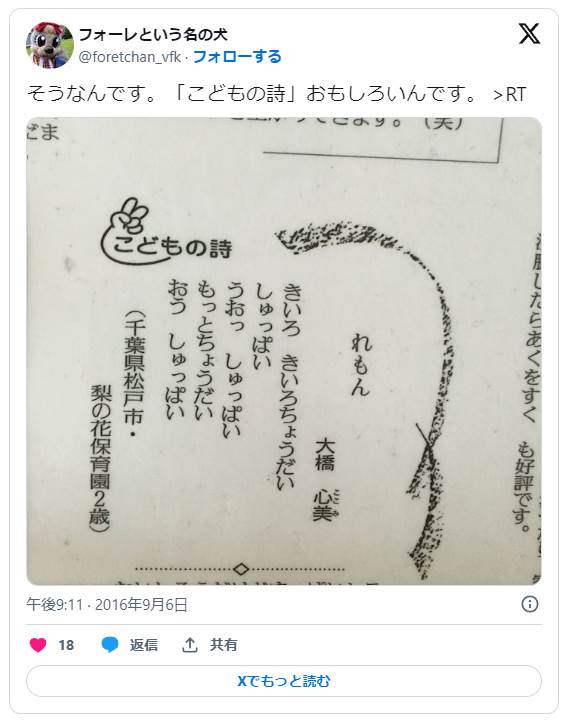 フォーレという名の犬
@foretchan_vfk · フォローする
そうなんです。「こどもの詩」おもしろいんです。 >RT
だま
(笑)
も好評です。
こどもの詩
れもん
大橋 心美
ここみ
きいろ きいろちょうだい
しゅっぱい
うおっ しゅっぱい
もっとちょうだい
おう しゅっぱい
(千葉県松戸市・
梨の花保育園2歳)
午後9:11 · 2016年9月6日
18
返信
共有
Xでもっと読む